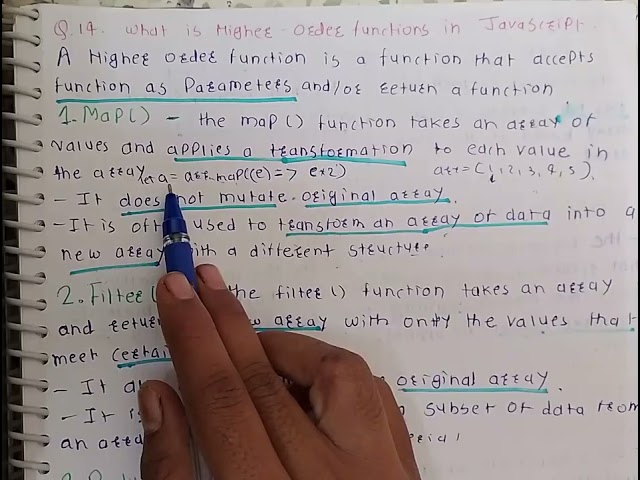 Q.14. What is Higher Order functions in JavaScript.
A Higher order function is a function that accepts
function as Parameters and/or return a function
1. Map() - the map() function takes an array of
values and applies a transformation to each value in
the array let a = arr.map((e) => e*2) arr = (1, 2, 3, 4, 5)
- It does not mutate original array.
- It is often used to transform an array of data into a
new array with a different structure.
2. Filter( the filter() function takes an array
and return new array with only the values that
meet certai
- It original array.
- It is subset of data from
an array